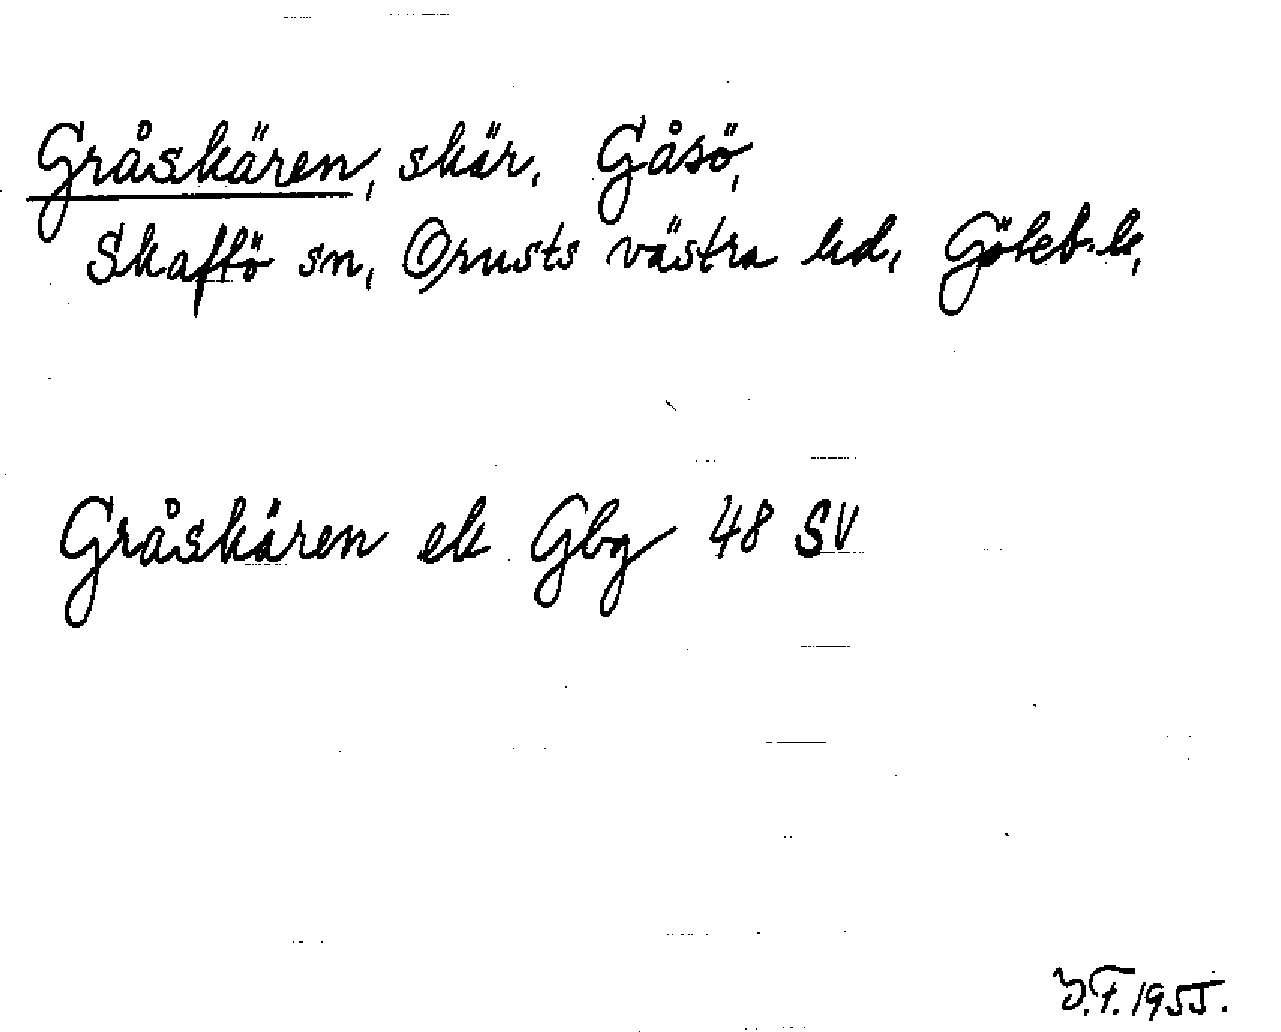 Gråskären, skär, Gåsö,
Skaftö sn, Orusts västra hd, Göteb. l.,
Gråskären ek Gbg 48 SV
J.F. 1955.